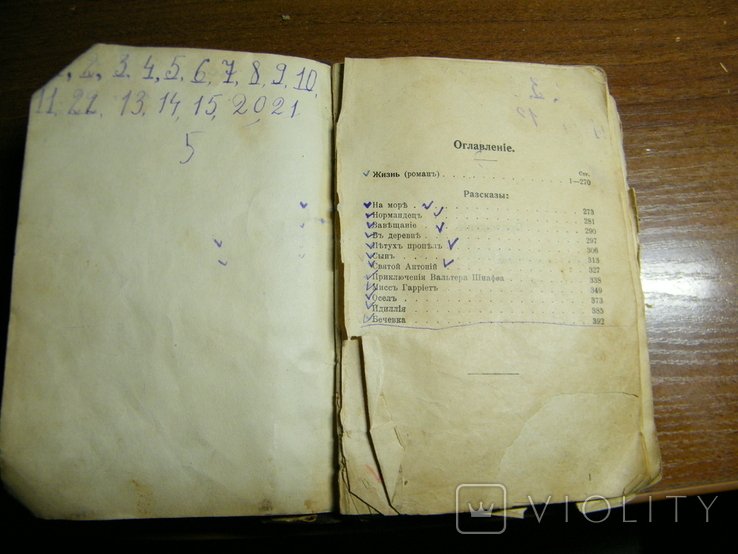 2, 3, 4, 5, 6, 7, 8, 9, 10,
11, 22, 13, 14, 15, 20, 21
5
Оглавленіе.
Стр.
Жизнь (романъ) 1—270
Разсказы:
На морѣ 273
Нормандецъ 281
Завѣщаніе 290
Въ деревнѣ 297
Пѣтухъ пропѣлъ 306
Сынъ 313
Святой Антоній 327
Приключенія Вальтера Шнафса 338
Миссъ Гарріетъ 349
Оселъ 373
Идиллія 385
Бечевка 392
VIOLITY